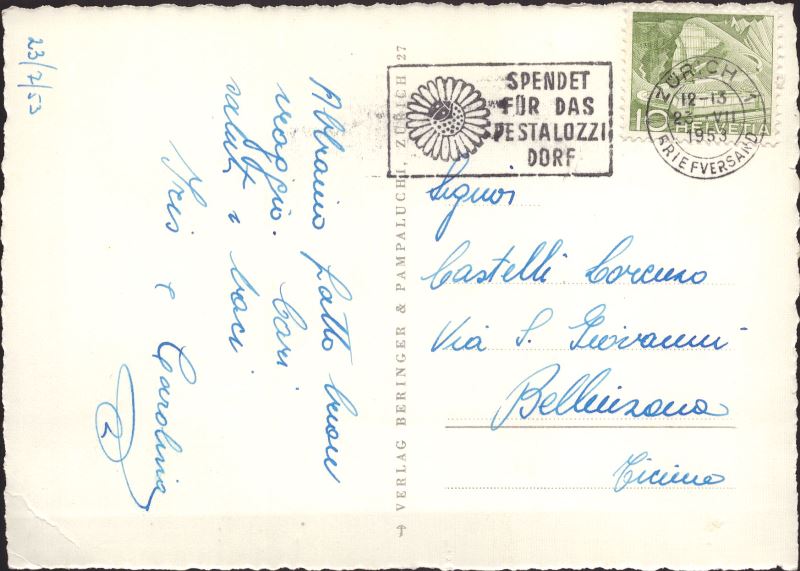 23/7/53
Abbiamo fatto buon
viaggio. Cari
saluti e baci
Iris e Carolina
VERLAG BERINGER & PAMPALUCHI, ZÜRICH 27
SPENDET
FÜR DAS
PESTALOZZI
DORF
ZÜRICH 1
12-13
23. VII
1953
BRIEFVERSAND
10 HELVETIA
Signor
Castelli Lorenzo
Via S. Giovanni
Bellinzona
Ticino